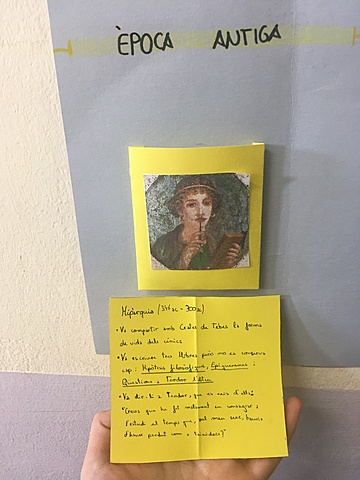 ÈPOCA ANTIGA
Hipàrquia (346 aC - 300 aC)
• Va compartir amb Crates de Tebes la forma
de vida dels cínics
• Va escriure tres llibres però no es conserva
cap: Hipòtesis filosòfiques, Epiqueremes i
Qüestions a Teodor l'ateu
• Va dir-li a Teodor, que es reia d'ella:
"Creus que he fet malament en consagrar a
l'estudi el temps que, pel meu sexe, hauria
d'haver perdut com a teixidora?"